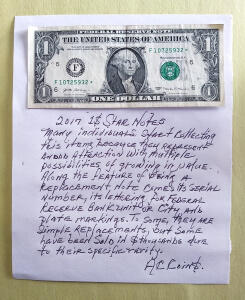 F 10725932 *
F 10725932 *
1
ONE DOLLAR
2017 1$ STAR NOTES
Many individuals start collecting
this items because they represent
an attraction with multiple
possibilities of growing in value.
Along the feature of being a
replacement note comes its serial
number, its lettering for Federal
Reserve Bank unit or City and
plate markings. To some, they are
simple replacements, but some
have been sold in $ thousands due
to their specific rarity.
AC Coins.